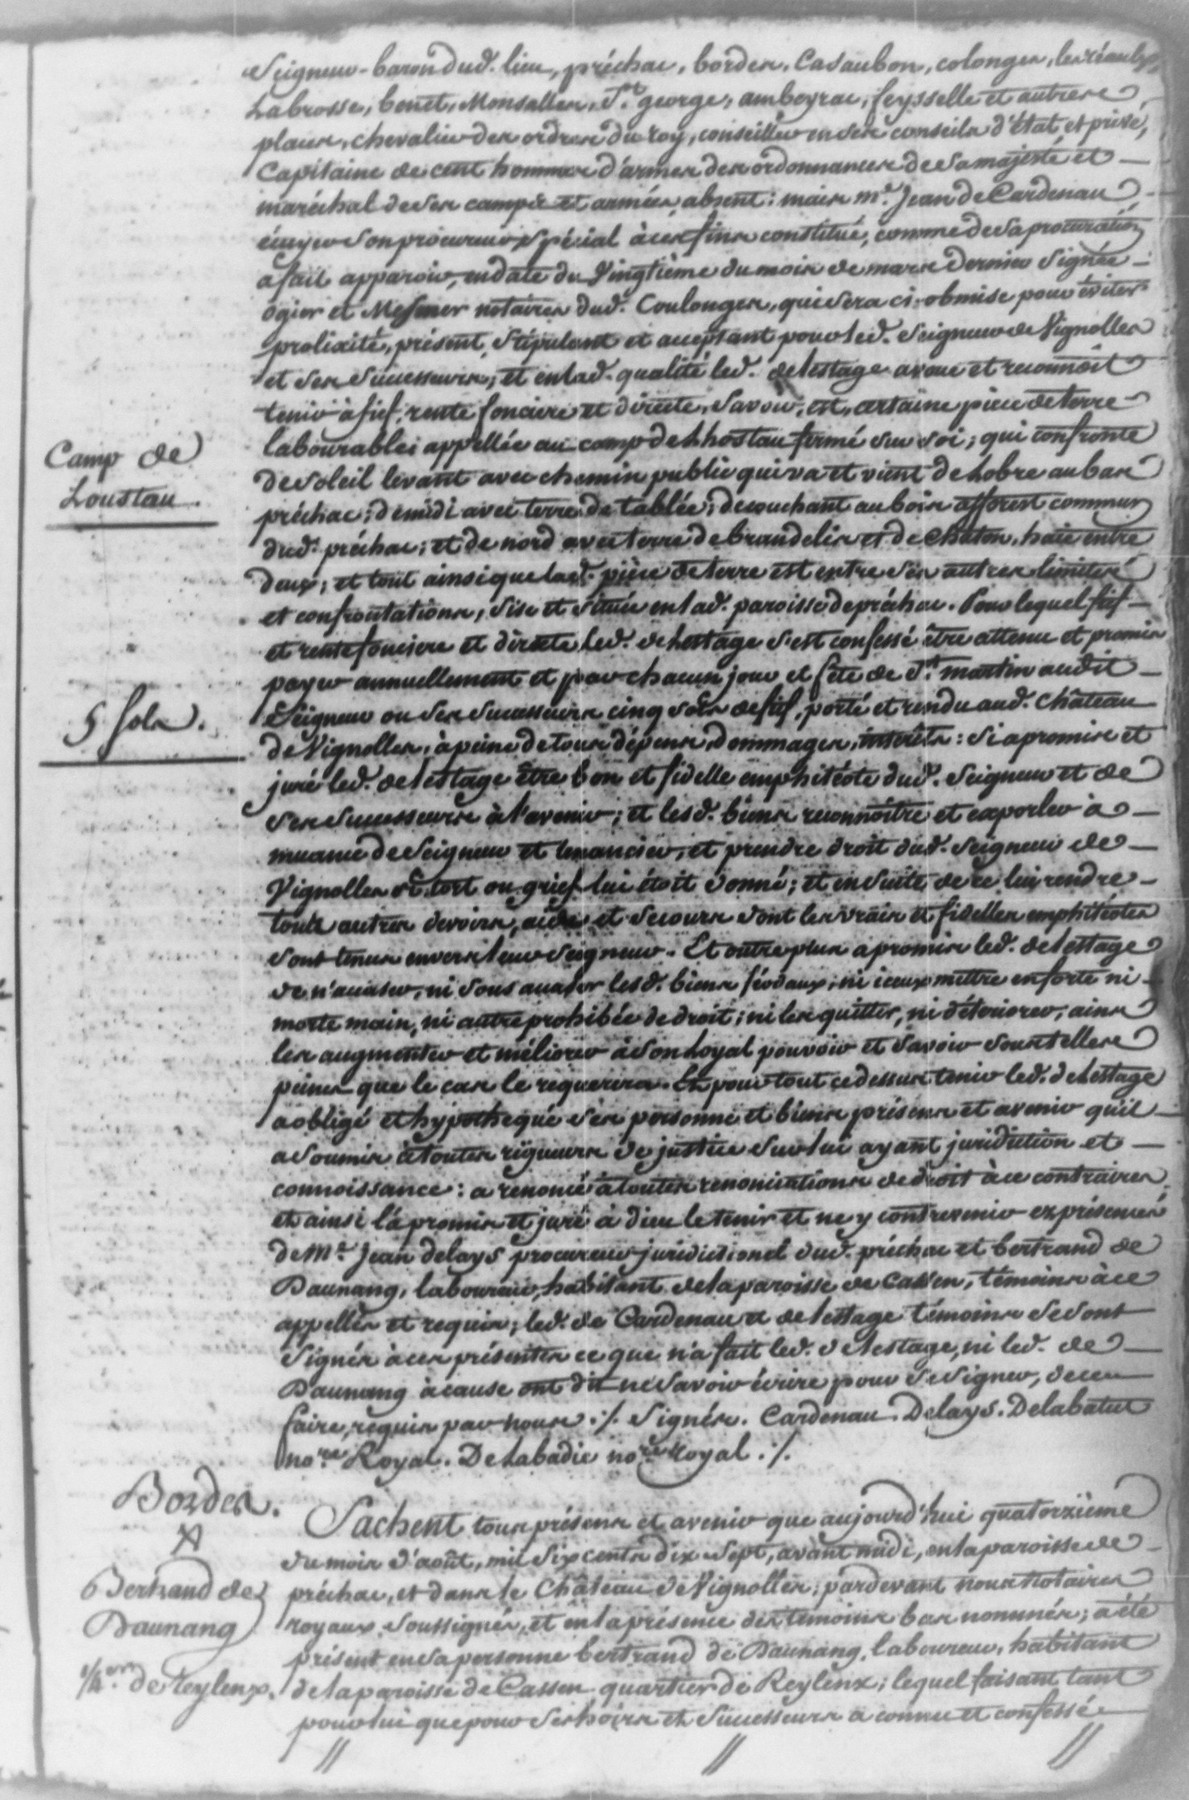 Seigneur-baron dud. lieu, préchac, bordes, Casaubon, colonges, les réaulx,
Labrosse, benet, Monsalles, St. george, ambeyrac, feysselle et autres
places, chevalier des ordres du roy, conseiller en ses conseils d'état et privé,
Capitaine de cent hommes d'armes des ordonnances de sa majesté et
maréchal de ses camps et armées, absent: mais me. Jean de Cardenau,
écuyer son procureur spécial à ces fins constitué, comme de sa procuration
a fait apparoir, en date du Vingtième du mois de mars dernier Signée
ogier et Mesmer notaires dud. Coulonges, qui sera ci-obmise pour éviter
prolixité, présent, Stipulant et acceptant pour led. Seigneur de Vignolles
et ses Successeurs, et en lad. qualité led. delestage avoue et reconnoît
tenir à fief, rente fonciere et directe, Savoir, est, certaine piece de terre
labourables appellée au camp de Lhostau fermé sur soi; qui confronte
de soleil levant avec chemin public qui va et vient de Lobre au bas
préchac; de midi avec terre de tablée; de couchant au bois afforest commun
dud. préchac; et de nord avec terre de brandelis et de chaton, haie entre
deux; et tout ainsi que lad. pièce de terre est entre ses autres limites
et confrontations, sise et située en lad. paroisse de préchac. Pour lequel fief
et rente fonciere et directe led. delestage s'est confessé être attenu et promis
payer annuellement et par chacun jour et fête de St. martin audit
Seigneur ou ses Successeurs cinq sols de fief, porté et rendu aud. château
de Vignolles, à peine de tous dépens, dommages, interêts: Si a promis et
juré led. delestage être bon et fidelle emphitéote dud. Seigneur et de
ses Successeurs à l'avenir; et lesd. biens reconnoître et exporler à
muance de Seigneur et tenancier, et prendre droit dud. Seigneur de
Vignolles si tort ou grief lui étoit donné; et en Suite de ce lui rendre
touts autres devoirs, aide et secours dont les vrais et fidelles emphitéotes
sont tenus envers leur Seigneur. Et outre plus a promis led. delestage
de n'acaser, ni sous acaser lesd. biens féodaux, ni iceux mettre en forte ni
morte main, ni autre prohibée de droit; ni les quitter, ni détériorer, ains
les augmenter et méliorer à son Loyal pouvoir et savoir sous telles
peines que le cas le requerera. Et pour tout ce dessus tenir led. delestage
a obligé et hypothequé ses personne et biens présens et avenir qu'il
a Soumis à toutes rigueurs de justice sur lui ayant juridiction et
connoissance: a renoncé à toutes renonciations de droit à ce contraires
et ainsi l'a promis et juré à dieu le tenir et ne y contrevenir ez présences
de Me. Jean delays procureur juridictionel dud. préchac et bertrand de
Daunang, laboureur, habitant de la paroisse de Cassen, témoins à ce
appellés et requis; led. de Cardenau et delestage témoins se sont
Signés à ces présentes ce que n'a fait led. delestage, ni led. de
Daunang à cause ont dit ne savoir écrire pour se signer, de ce
faire, requis par nous ./. Signés. Cardenau. Delays. Delabatut
nore. Royal. Delabadie nore. Royal ./.
Camp de
Loustau
5 sols.
Bordes.
Bertrand de
Daunang
de Reylenx.
Sachent tous présens et avenir que aujourd'hui quatorzième
du mois d'août, mil six cents dix sept, avant midi, en la paroisse de
préchac, et dans le Château de Vignolles; pardevant nous Notaires
royaux soussignés, et en la présence des témoins bas nommés; a été
présent en sa personne bertrand de Daunang, laboureur, habitant
de la paroisse de Cassen quartier de Reylenx; lequel faisant tant
pour lui que pour ses hoirs et Successeurs a connu et confessé